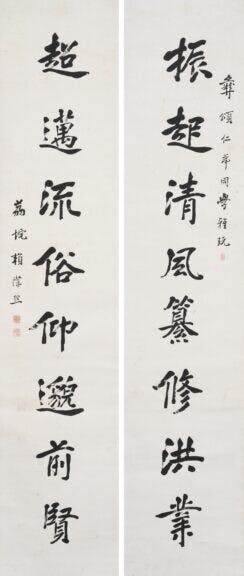 彝頌仁弟同學雅玩
振起清風纂修洪業
超邁流俗仰邈前賢
荔垞賴際熙